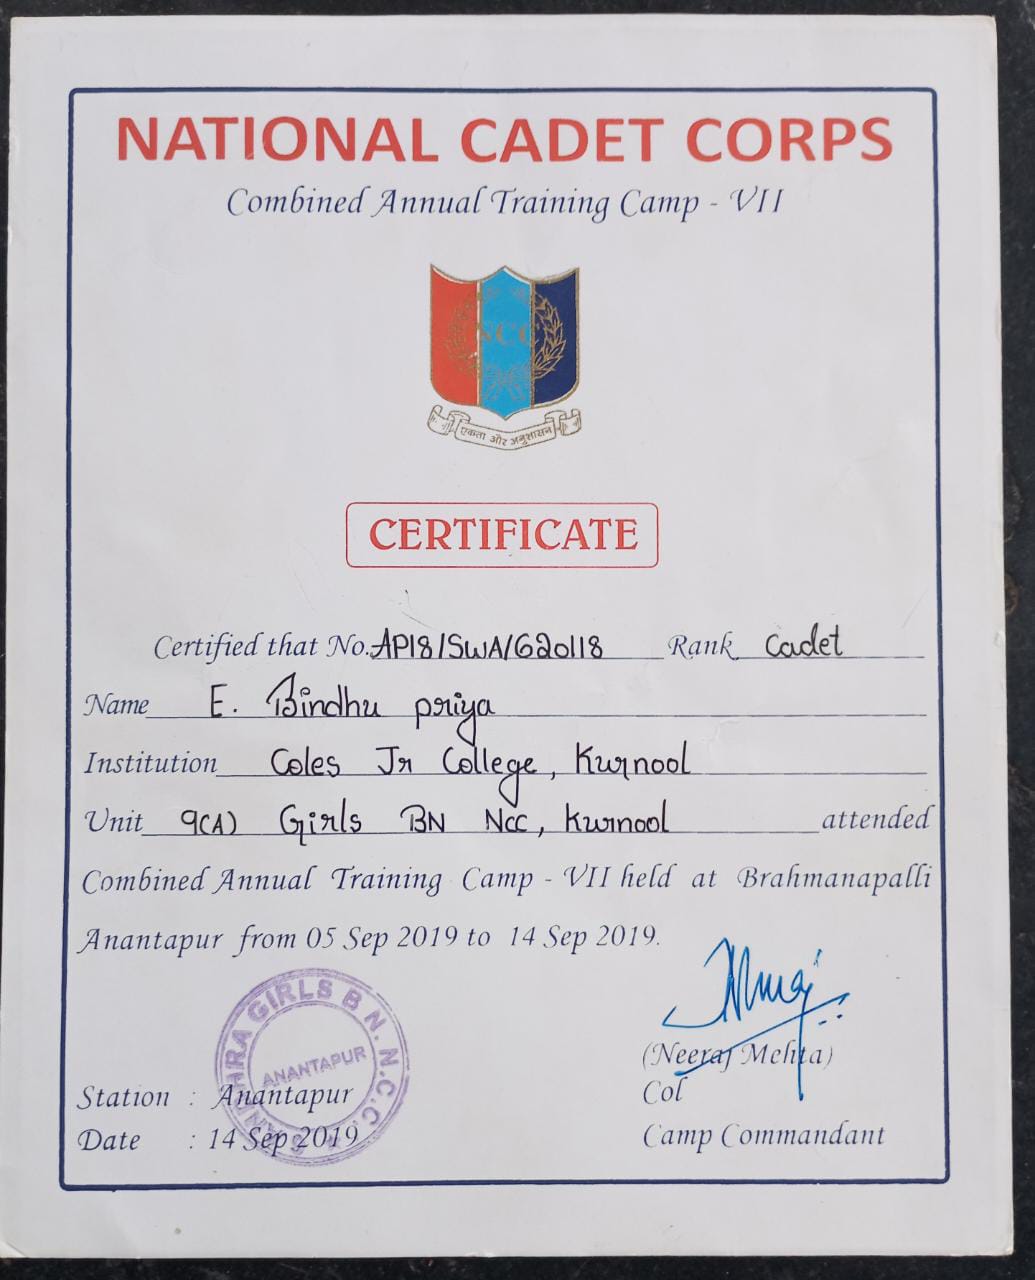 NATIONAL CADET CORPS
Combined Annual Training Camp - VII
NCC
एकता और अनुशासन
CERTIFICATE
Certified that No. AP18/SWA/620118 Rank Cadet
Name E. Bindhu priya
Institution Coles Jr College, Kurnool
Unit 9(A) Girls BN Ncc, Kurnool attended
Combined Annual Training Camp - VII held at Brahmanapalli
Anantapur from 05 Sep 2019 to 14 Sep 2019.
ANDHRA GIRLS B N. N.C.C.
ANANTAPUR
(Neeraj Mehta)
Station : Anantapur
Col
Date : 14 Sep 2019
Camp Commandant